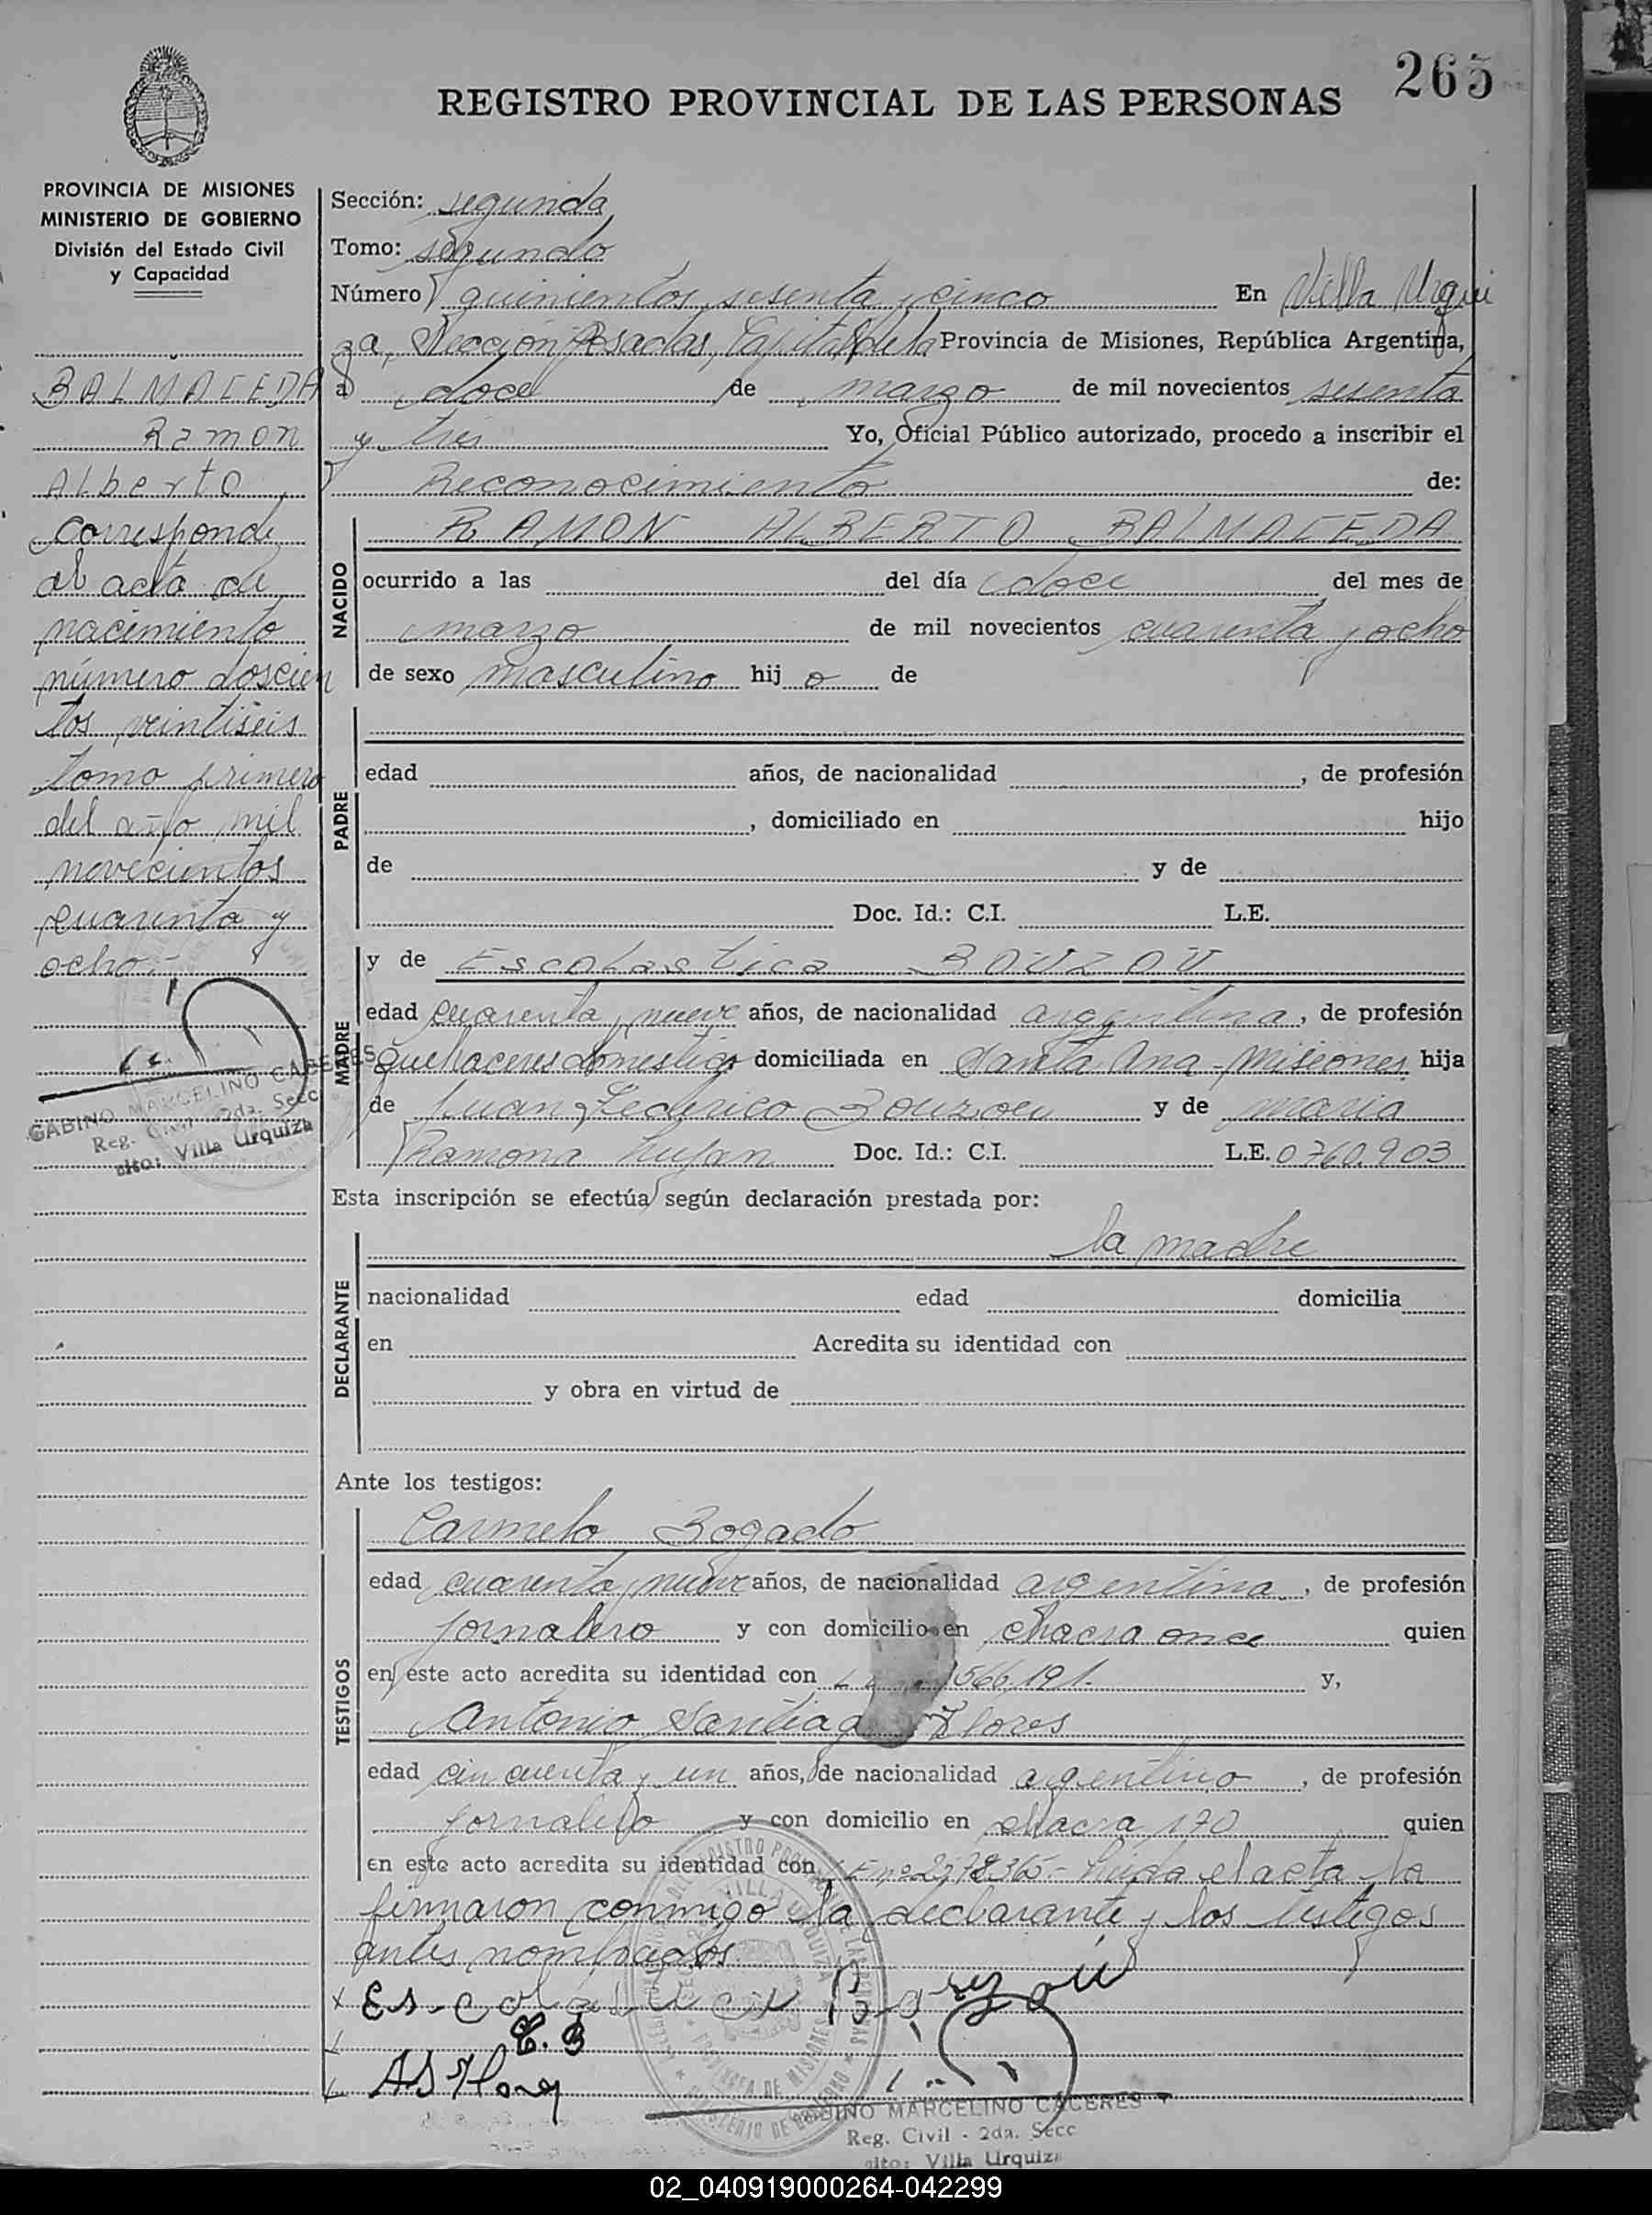 265
REGISTRO PROVINCIAL DE LAS PERSONAS
PROVINCIA DE MISIONES
MINISTERIO DE GOBIERNO
División del Estado Civil
y Capacidad
BALMACEDA
Ramon
Alberto
Corresponde
al acta de
nacimiento
número doscien
tos veintiseis
tomo primero
del año mil
novecientos
cuarenta y
ocho.-
GABINO MARCELINO CACERES
Reg. Civil - 2da. Secc
alto: Villa Urquiza
Sección: segunda
Tomo: segundo
Número quinientos sesenta y cinco En Villa Urqui
za, Sección Posadas, Capital de la Provincia de Misiones, República Argentina,
a doce de marzo de mil novecientos sesenta
y tres Yo, Oficial Público autorizado, procedo a inscribir el
Reconocimiento de:
NACIDO
RAMON ALBERTO BALMACEDA
ocurrido a las del día doce del mes de
marzo de mil novecientos cuarenta y ocho
de sexo masculino hij o de
PADRE
edad años, de nacionalidad , de profesión
, domiciliado en hijo
de y de
Doc. Id.: C.I. L.E.
MADRE
y de Escolastica BOUZOU
edad cuarenta y nueve años, de nacionalidad argentina, de profesión
quehaceres domestico domiciliada en Santa Ana - Misiones hija
de Juan Federico Bouzou y de Maria
Ramona Lujan Doc. Id.: C.I. L.E. 0760.903
Esta inscripción se efectúa según declaración prestada por:
DECLARANTE
la madre
nacionalidad edad domicilia
en Acredita su identidad con
y obra en virtud de
Ante los testigos:
TESTIGOS
Carmelo Bogado
edad cuarenta y nueve años, de nacionalidad argentina, de profesión
jornalero y con domicilio en chacra once quien
en este acto acredita su identidad con 566.191.- y,
Antonio Santiago Flores
edad cincuenta y un años, de nacionalidad argentino, de profesión
jornalero y con domicilio en chacra 170 quien
en este acto acredita su identidad con L E nº 2578365.- Leida el acta la
firmaron conmigo la declarante y los testigos
antes nombrados.
x Escolastica Bouzoú
C. B
AS Flores
GABINO MARCELINO CACERES
Reg. Civil - 2da. Secc
alto: Villa Urquiza
02_040919000264-042299